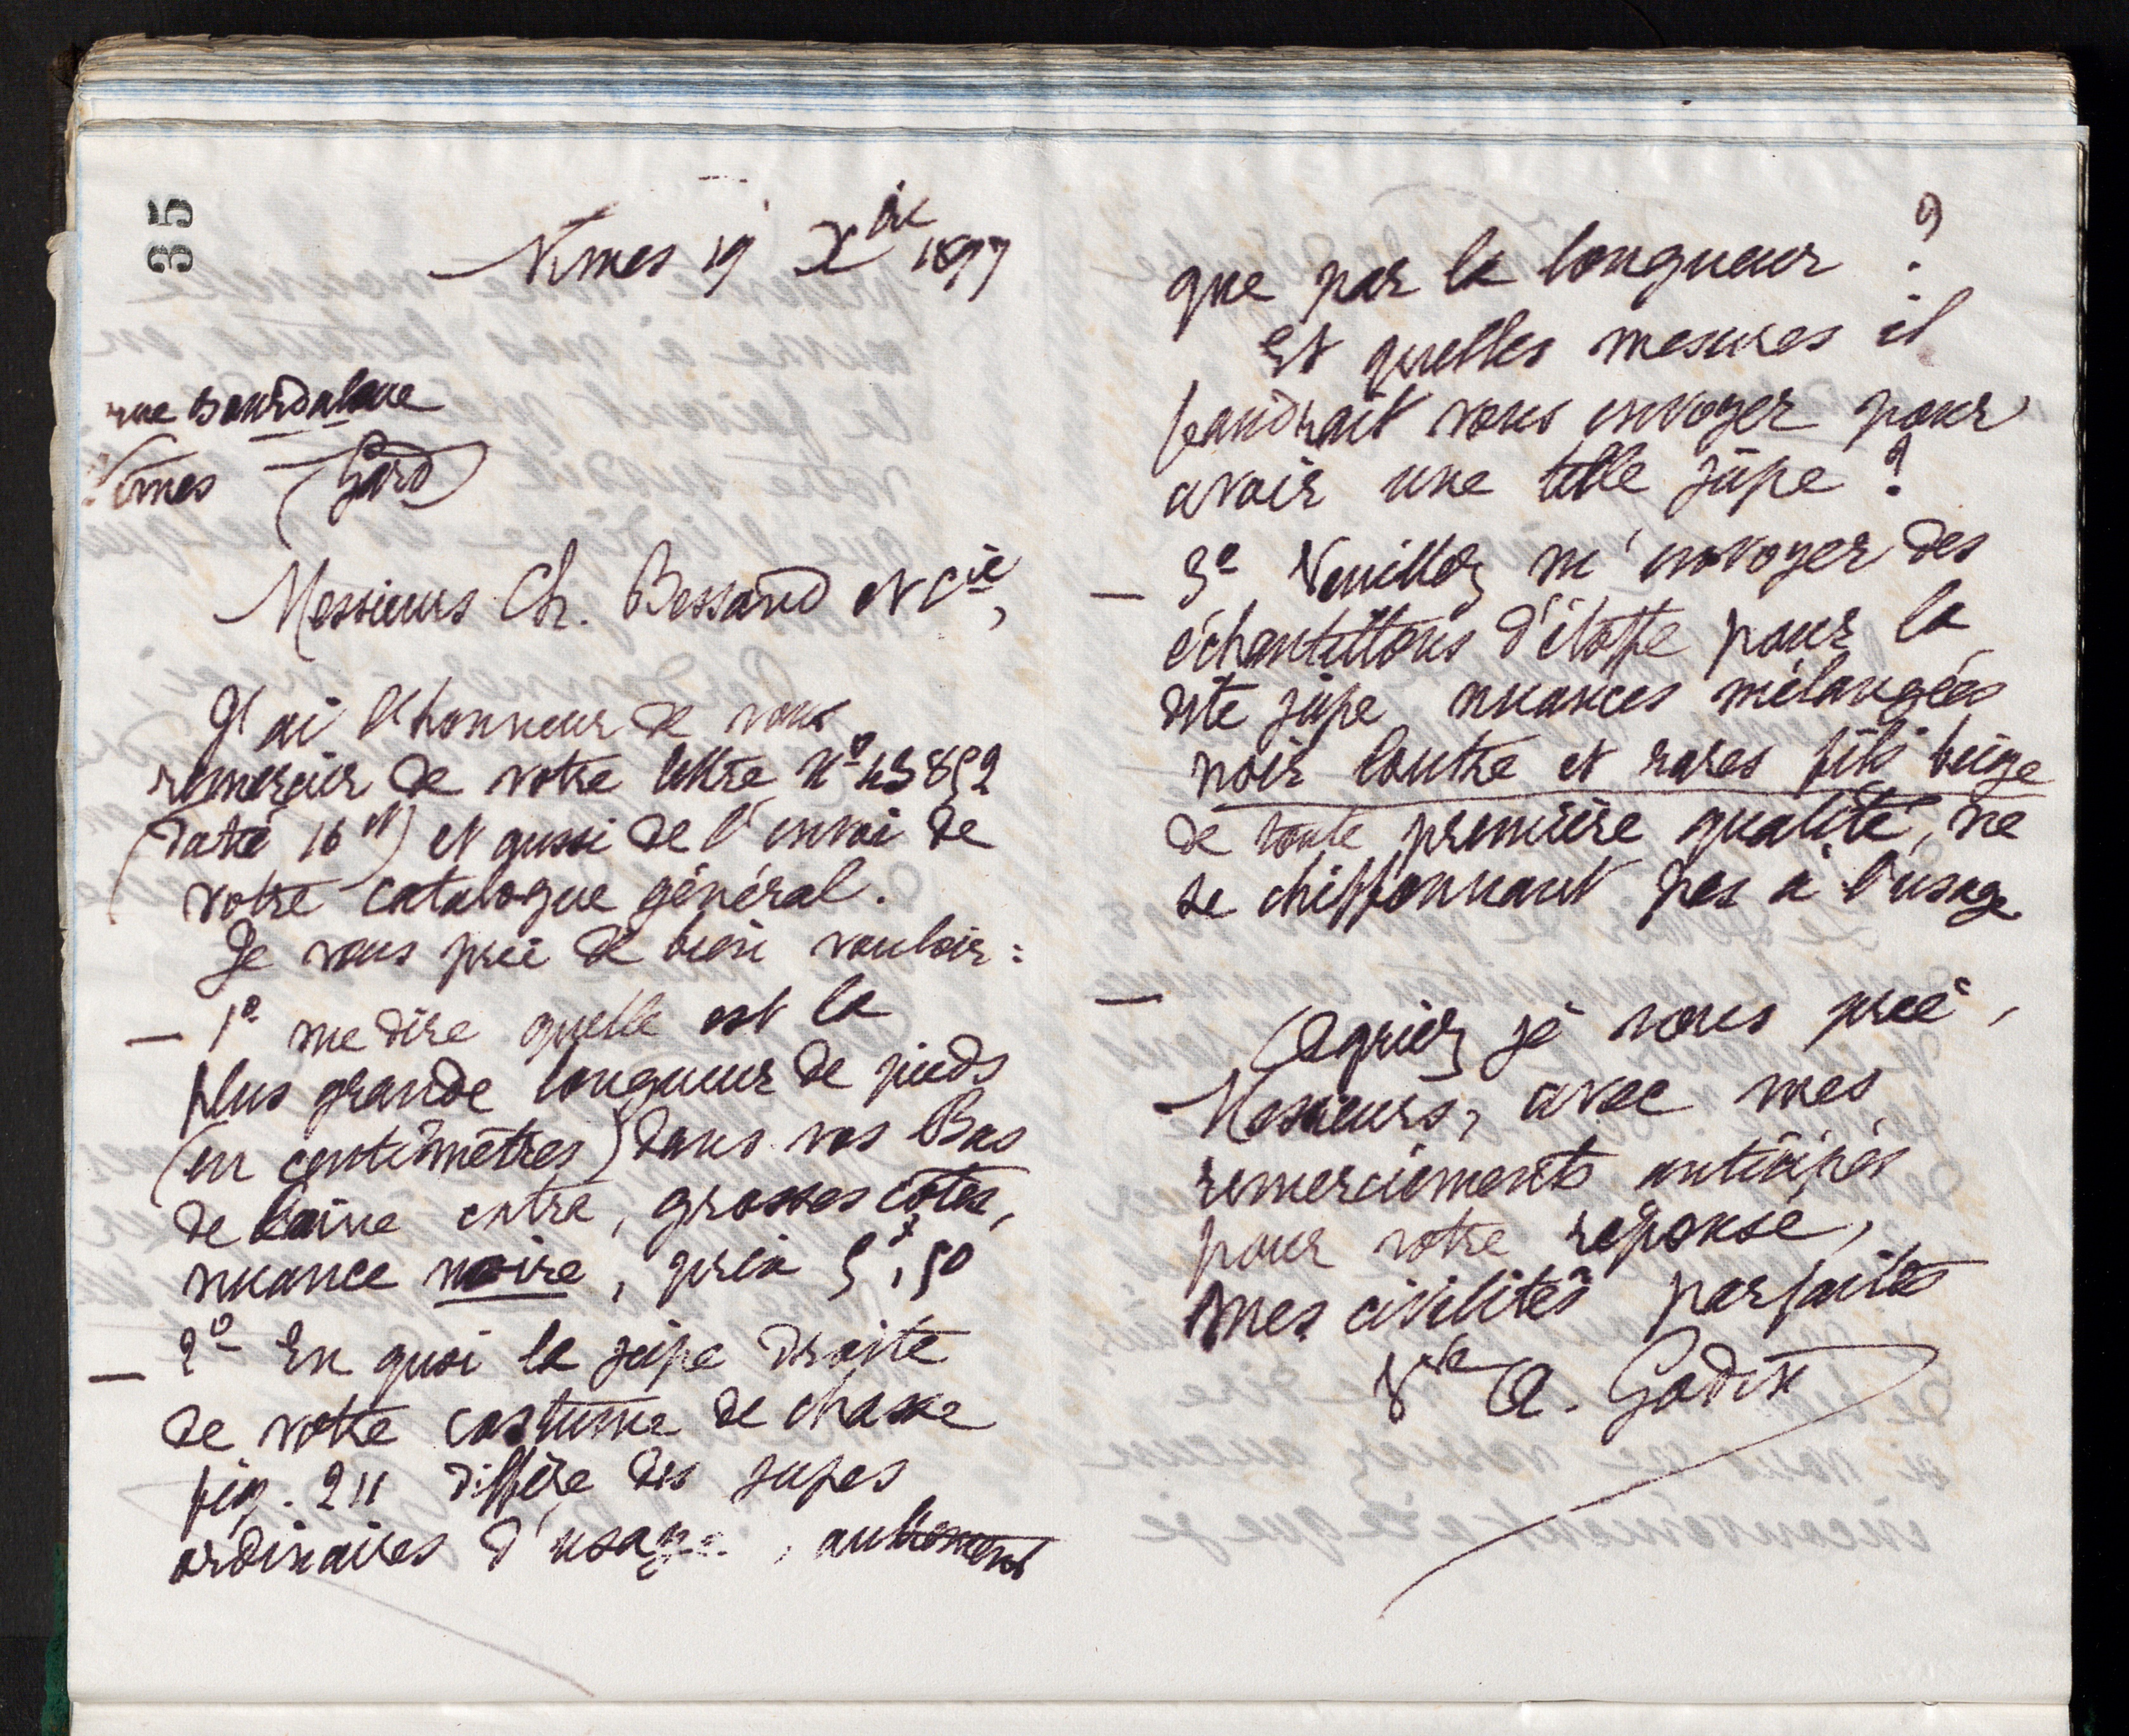 35
Nimes 19 Xbre 1897
rue Bourdaloue
Nimes (Gard)
Messieurs Ch. Bessand et Cie,
J'ai l'honneur de vous
remercier de votre lettre No 43852
(datée 16 ct) et aussi de l'envoi de
votre catalogue général.
Je vous prie de bien vouloir :
— 1o me dire quelle est la
plus grande longueur de pieds
(en centimètres) dans vos Bas
de laine extra, grosses côtes,
nuance noire, prix 5f,50
— 2o En quoi la jupe droite
de votre costume de chasse
fig. 211 diffère des jupes
ordinaires d'usage, autrement
que par la longueur ?
Et quelles mesures il
faudrait vous envoyer pour
avoir une telle jupe ?
— 3o Veuillez m'envoyer des
échantillons d'étoffe pour la
dite jupe nuances mélangées
noir loutre et rares fils beige
de toute première qualité, ne
se chiffonnant pas à l'usage
— Agréez je vous prie,
Messieurs, avec mes
remerciements anticipés
pour votre réponse,
mes civilités parfaites
Vve A. Godin